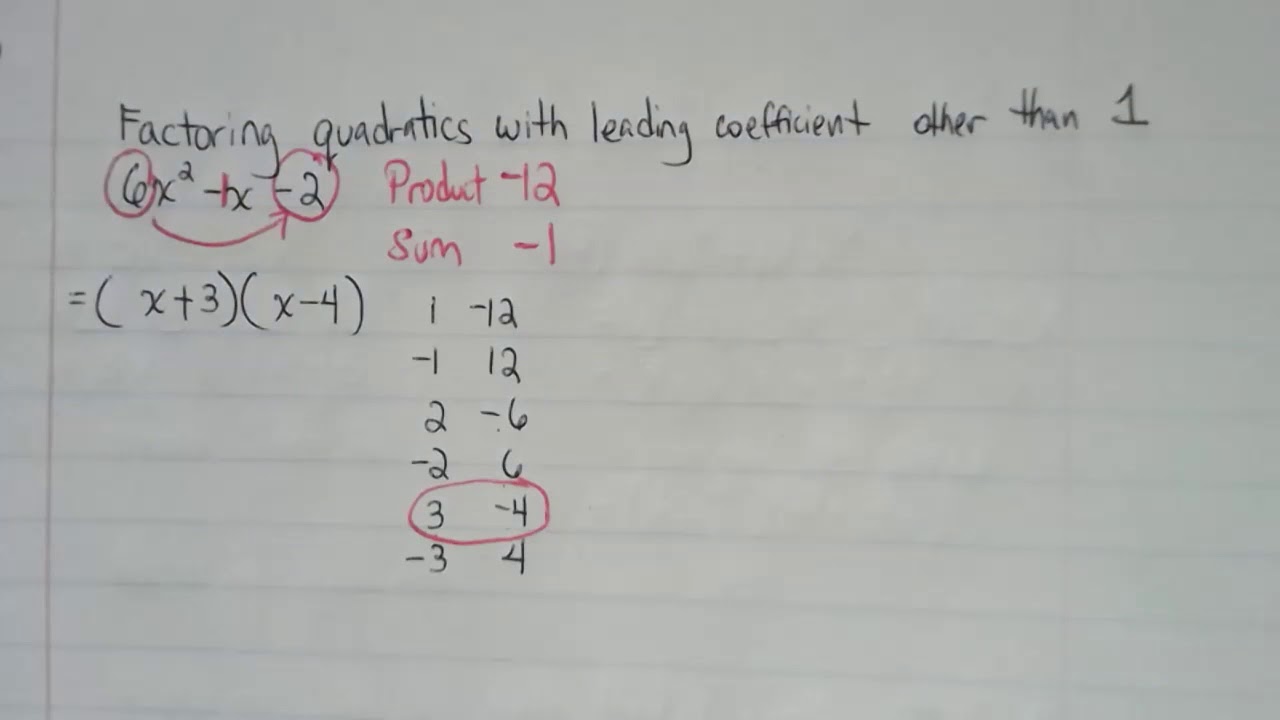 Factoring quadratics with leading coefficient other than 1
6x² -1x -2 Product -12
Sum -1
=( x+3)(x-4) 1 -12
-1 12
2 -6
-2 6
3 -4
-3 4